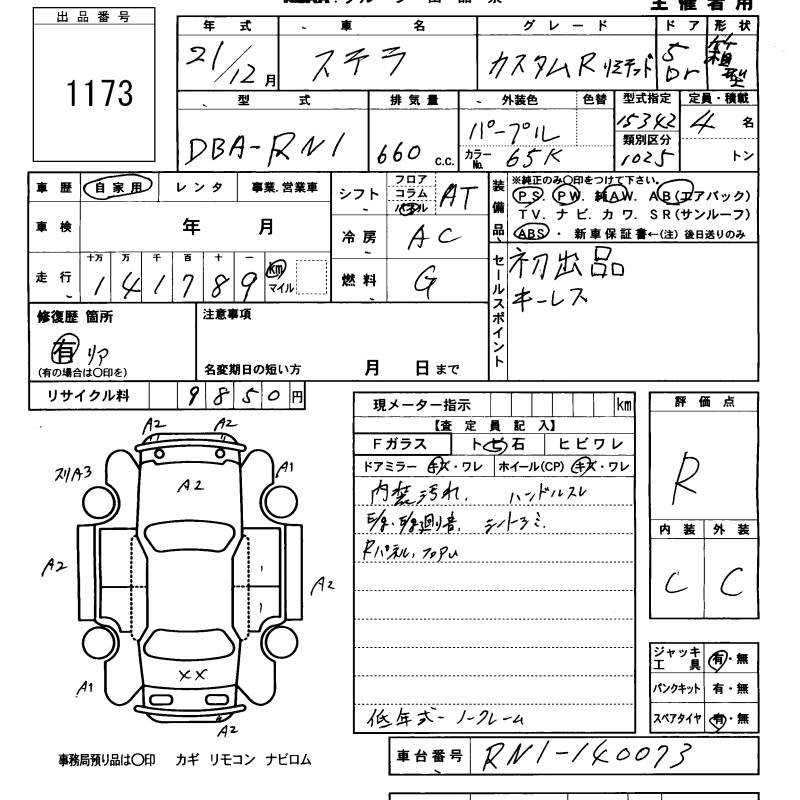 主催者用
出品番号
1173
年式 車名 グレード ドア 形状
21/12月 ステラ カスタムR リミテッド 5Dr 箱型
型式 排気量 外装色 色替 型式指定 定員・積載
DBA-RN1 660 c.c. パープル 15342 4名
カラーNo. 65K 類別区分 1025 トン
車歴 自家用 レンタ 事業.営業車
シフト フロア コラム パネル AT
装備品 ※純正のみ〇印をつけて下さい。
PS. PW. 純AW. AB(エアバック)
TV. ナビ. カワ. SR(サンルーフ)
ABS ・ 新車保証書←(注)後日送りのみ
車検 年 月
冷房 AC
走行 十万 万 千 百 十 一
141789 km マイル
燃料 G
セールスポイント 初出品
キーレス
修復歴 箇所
有 リア
(有の場合は〇印を)
注意事項
名変期日の短い方 月 日まで
リサイクル料 9850円
現メーター指示 km
【査定員記入】
Fガラス トビ石 ヒビワレ
ドアミラー キズ・ワレ ホイール(CP) キズ・ワレ
内装汚れ. ハンドルスレ
シートシミ.
Rパネル.
低年式-ノークレーム
評価点
R
内装 外装
C C
A2 A2
スリA3 A2 A1
A2 A2
XX
A1 A2
ジャッキ工具 有・無
パンクキット 有・無
スペアタイヤ 有・無
事務局預り品は〇印 カギ リモコン ナビロム
車台番号 RN1-140073